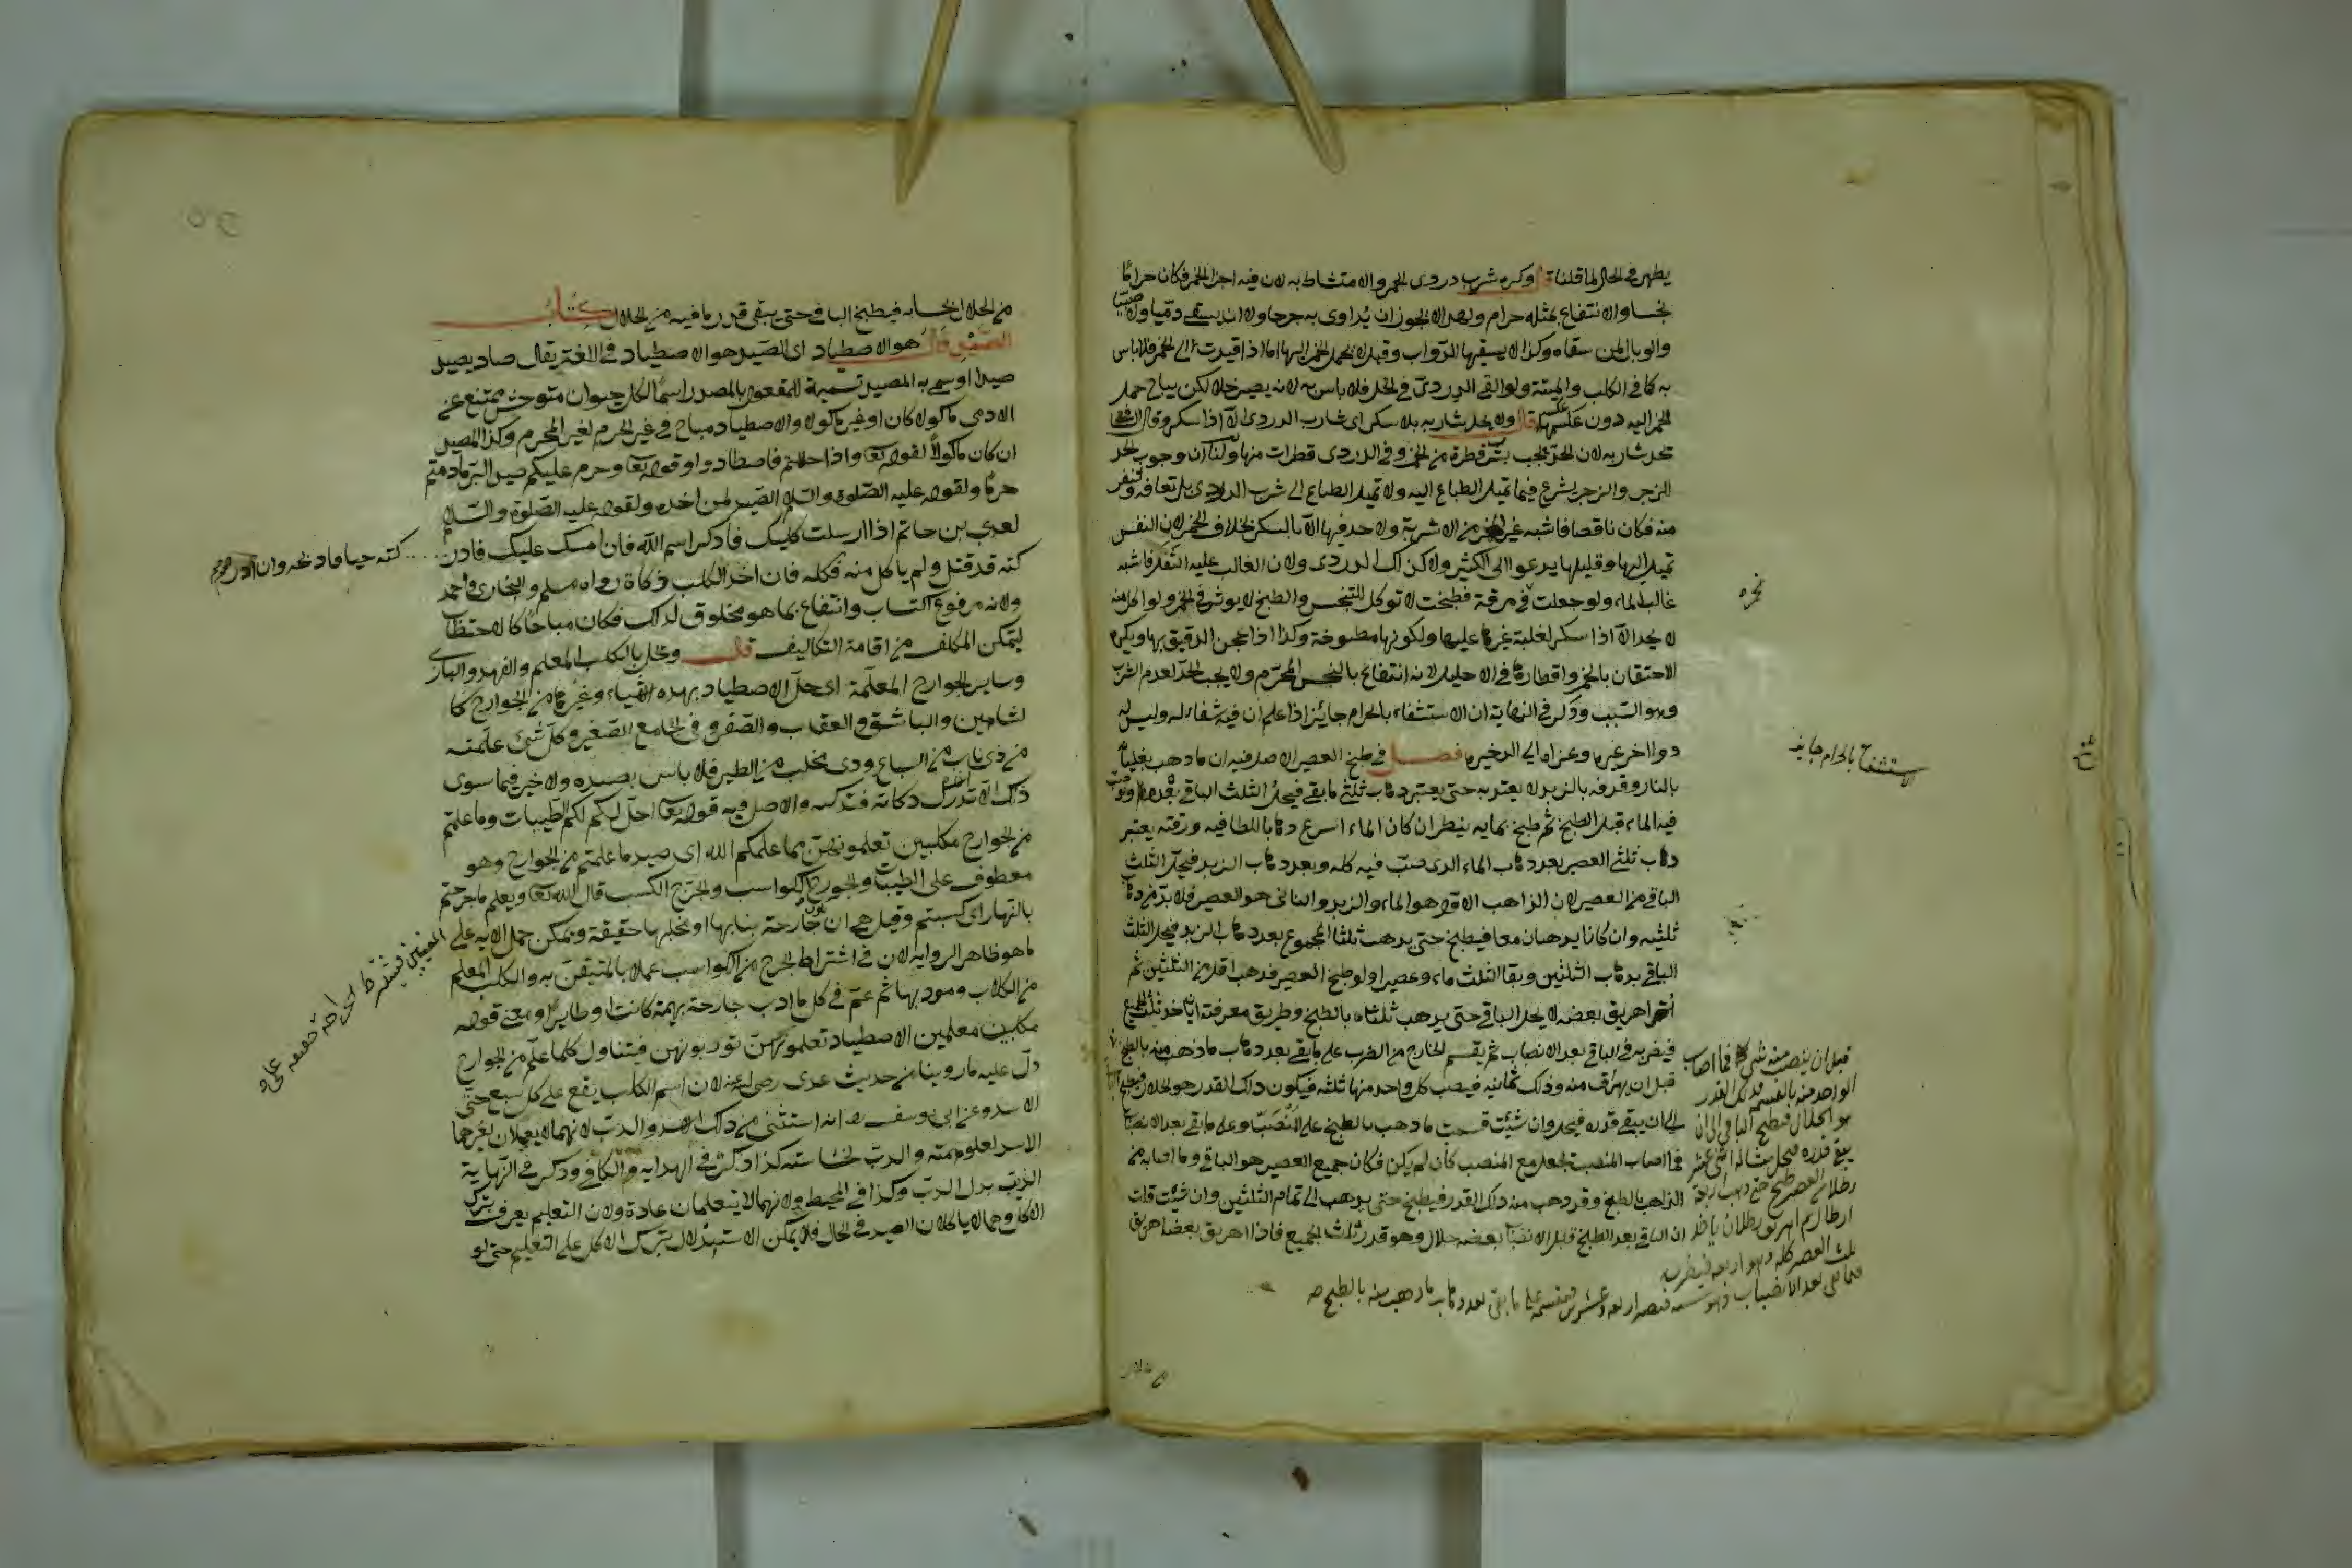 يطهر في الحال لما قلنا قال وكره شرب دردى الخمر والامتشاط به لان فيه اجزاء الخمر فكان حراما
نجسا والانتفاع بمثله حرام ولهذا لا يجوز ان يداوى به جرحا ولا ان يسقى ذميا ولا صبيا
والوبال لمن سقاه وكذا لا يسقيها الدواب وقيل لا يحمل الخمر اليها اما اذا قيدت الى الخمر فلا باس
به كما في الكلب والميتة ولو القى الدردى في الخل فلا باس به لانه يصير خلا لكن يباح حمل
الخمر اليه دون عكسه قال ولا يحد شاربه بلا سكر اى شارب الدردى الا اذا سكر وقال الشافعى
يحد شاربه لان الحد يجب بشرب قطرة من الخمر وفي الدردى قطرات منها ولنا ان وجوب الحد
للزجر والزجر يشرع فيما تميل الطباع اليه ولا تميل الطباع الى شرب الدردى بل تعافه وتنفر
منه فكان ناقصا فاشبه غير الخمر من الاشربة ولا حد فيها الا بالسكر بخلاف الخمر لان النفس
تميل اليها وقليلها يدعو الى الكثير ولا كذلك الدردى ولان الغالب عليه الثفل فاشبه
غالب الماء ولو جعلت في مرقة فطبخت لا توكل للتنجس والطبخ لا يوثر في الخمر ولو اكل منه
لا يحد الا اذا سكر لغلبة غيرها عليها ولكونها مطبوخة وكذا اذا عجن الدقيق بها ويكره
الاحتقان بالخمر واقطارها في الاحليل لانه انتفاع بالنجس المحرم ولا يجب الحد لعدم الشرب
وهو السبب وذكر في النهاية ان الاستشفاء بالحرام جايز اذا علم ان فيه شفاء له وليس له
دواء اخر غيره وعزاه الى الذخيرة فصل في طبخ العصير الاصل فيه ان ما ذهب بغليانه
بالنار وقذفه بالزبد لا يعتد به حتى يعتبر ذهاب ثلثى ما بقى فيحل الثلث الباقى بعده ولو صب
فيه الماء قبل الطبخ ثم طبخ بمايه ينظر ان كان الماء اسرع ذهابا للطافيه ورقته يعتبر
ذهاب ثلثى العصير بعد ذهاب الماء الذى صب فيه كله وبعد ذهاب الزبد فيحل الثلث
الباقى من العصير لان الذاهب الاول هو الماء والزبد والثانى هو العصير فلا بد من ذهاب
ثلثيه وان كانا يذهبان معا فيطبخ حتى يذهب ثلثا المجموع بعد ذهاب الزبد فيحل الثلث
الباقى بذهاب الثلثين وبقا الثلث ماء وعصيرا ولو طبخ العصير فذهب اقل من الثلثين ثم
اهريق بعضه لا يحل الباقى حتى يذهب ثلثاه بالطبخ وطريق معرفته ان ياخذ ثلث الجميع
فيضربه في الباقى بعد الانصباب ثم يقسم الخارج من الضرب على ما بقى بعد ذهاب ما ذهب منه بالطبخ
قبل ان يهراق منه وذلك ثمانيه فيصب كل واحد منها ثلثه فيكون ذلك القدر هو الحلال فيطبخ
الى ان يبقى قدره فيحل وان شئت قسمت ما ذهب بالطبخ على المنصب وعلى ما بقى بعد الانصباب
فما اصاب المنصب تجعل مع المنصب كان لم يكن فكان جميع العصير هو الباقى وما اصابه من
الذاهب بالطبخ وقد ذهب منه ذلك القدر فيطبخ حتى يذهب الى تمام الثلثين وان شئت قلت
ان الباقى بعد الطبخ قبل الانصباب بعضه حلال وهو قدر ثلث الجميع فاذا اهريق بعضه اهريق
نجره
الاستشفاء بالحرام جايز
قبل ان ينصب منه شى فما اصاب
الواحد منه بالقسمة فذلك القدر
هو الحلال فيطبخ الباقى الى ان
يبقى قدره فيحل مثاله اثنى عشر
رطلا من العصير طبخ حتى ذهب اربعة
ارطال ثم اهريق رطلان ياخذ
ثلث العصير كله وهو اربعة فيضربه
فما بقى بعد الانصباب وهو ستة فيصير اربعة وعشرين فيقسمه على ما بقى بعد ذهاب ما ذهب منه بالطبخ صح
من الحلال بحسابه فيطبخ الباقى حتى يبقى قدر ما فيه من الحلال كتاب
الصيد قال هو الاصطياد اى الصيد هو الاصطياد في اللغة يقال صاد يصيد
صيدا وسمى به المصيد تسمية للمفعول بالمصدر اسما لكل حيوان متوحش ممتنع عن
الادمى ماكولا كان او غير ماكول والاصطياد مباح في غير الحرم لغير المحرم وكذا المصيد
ان كان ماكولا لقوله تعا واذا حللتم فاصطادوا وقوله تعا وحرم عليكم صيد البر ما دمتم
حرما ولقوله عليه الصلوة والسلام الصيد لمن اخذه ولقوله عليه الصلوة والسلام
لعدى بن حاتم اذا ارسلت كلبك فاذكر اسم الله فان امسك عليك فادر
كته قد قتل ولم ياكل منه فكله فان اخذ الكلب ذكاة رواه مسلم والبخارى واحمد
ولانه مرفوع اكتساب وانتفاع بما هو مخلوق لذلك فكان مباحا كالاحتطاب
ليتمكن المكلف من اقامة التكاليف قال ويحل بالكلب المعلم والفهد والبازى
وساير الجوارح المعلمة اى حل الاصطياد بهذه الاشياء وغيرها من الجوارح كا
لشاهين والباشق والعقاب والصقر وفي الجامع الصغير وكل شئ علمته
من ذى ناب من السباع وذى مخلب من الطير فلا باس بصيده ولا خير فيما سوى
ذلك الا ان تدرك ذكاته فتذكيه والاصل فيه قوله تعا احل لكم الطيبات وما علمتم
من الجوارح مكلبين تعلمونهن مما علمكم الله اى صيد ما علمتم من الجوارح وهو
معطوف على الطيبات والجوارح الكواسب والجرح الكسب قال الله تعا ويعلم ما جرحتم
بالنهار اى كسبتم وقيل هى ان تكون جارحة بنابها او مخلبها حقيقة ويمكن حمل الاية على
ما هو ظاهر الرواية لان في اشتراط الجرح من الكواسب عملا بالمتيقن به والكلب المعلم
من الكلاب ومودبها ثم عم في كل ما ادب جارحة بهيمة كانت او طايرا ومعنى قوله
مكلبين معلمين الاصطياد تعلمونهن تودبونهن فيتناول كلما علم من الجوارح
دل عليه ما روينا من حديث عدى رضى الله عنه لان اسم الكلب يقع على كل سبع حتى
الاسد وعن ابى يوسف انه استثنى من ذلك الاسد والدب لانهما لا يعملان لغيرهما
الاسد لعلو همته والدب لخساسته كذا ذكره في الهدايه والكافي وذكر في النهاية
الذيب بدل الدب وكذا في المحيط ولانهما لا يتعلمان عادة ولان التعليم يعرف بترك
الاكل وهما لا ياكلان الصيد في الحال فلا يمكن الاستدلال بترك الاكل على التعليم حتى لو
كته حيا فاذبحه وان ادر
المعنيين فيشترط الجراحة حقيقة